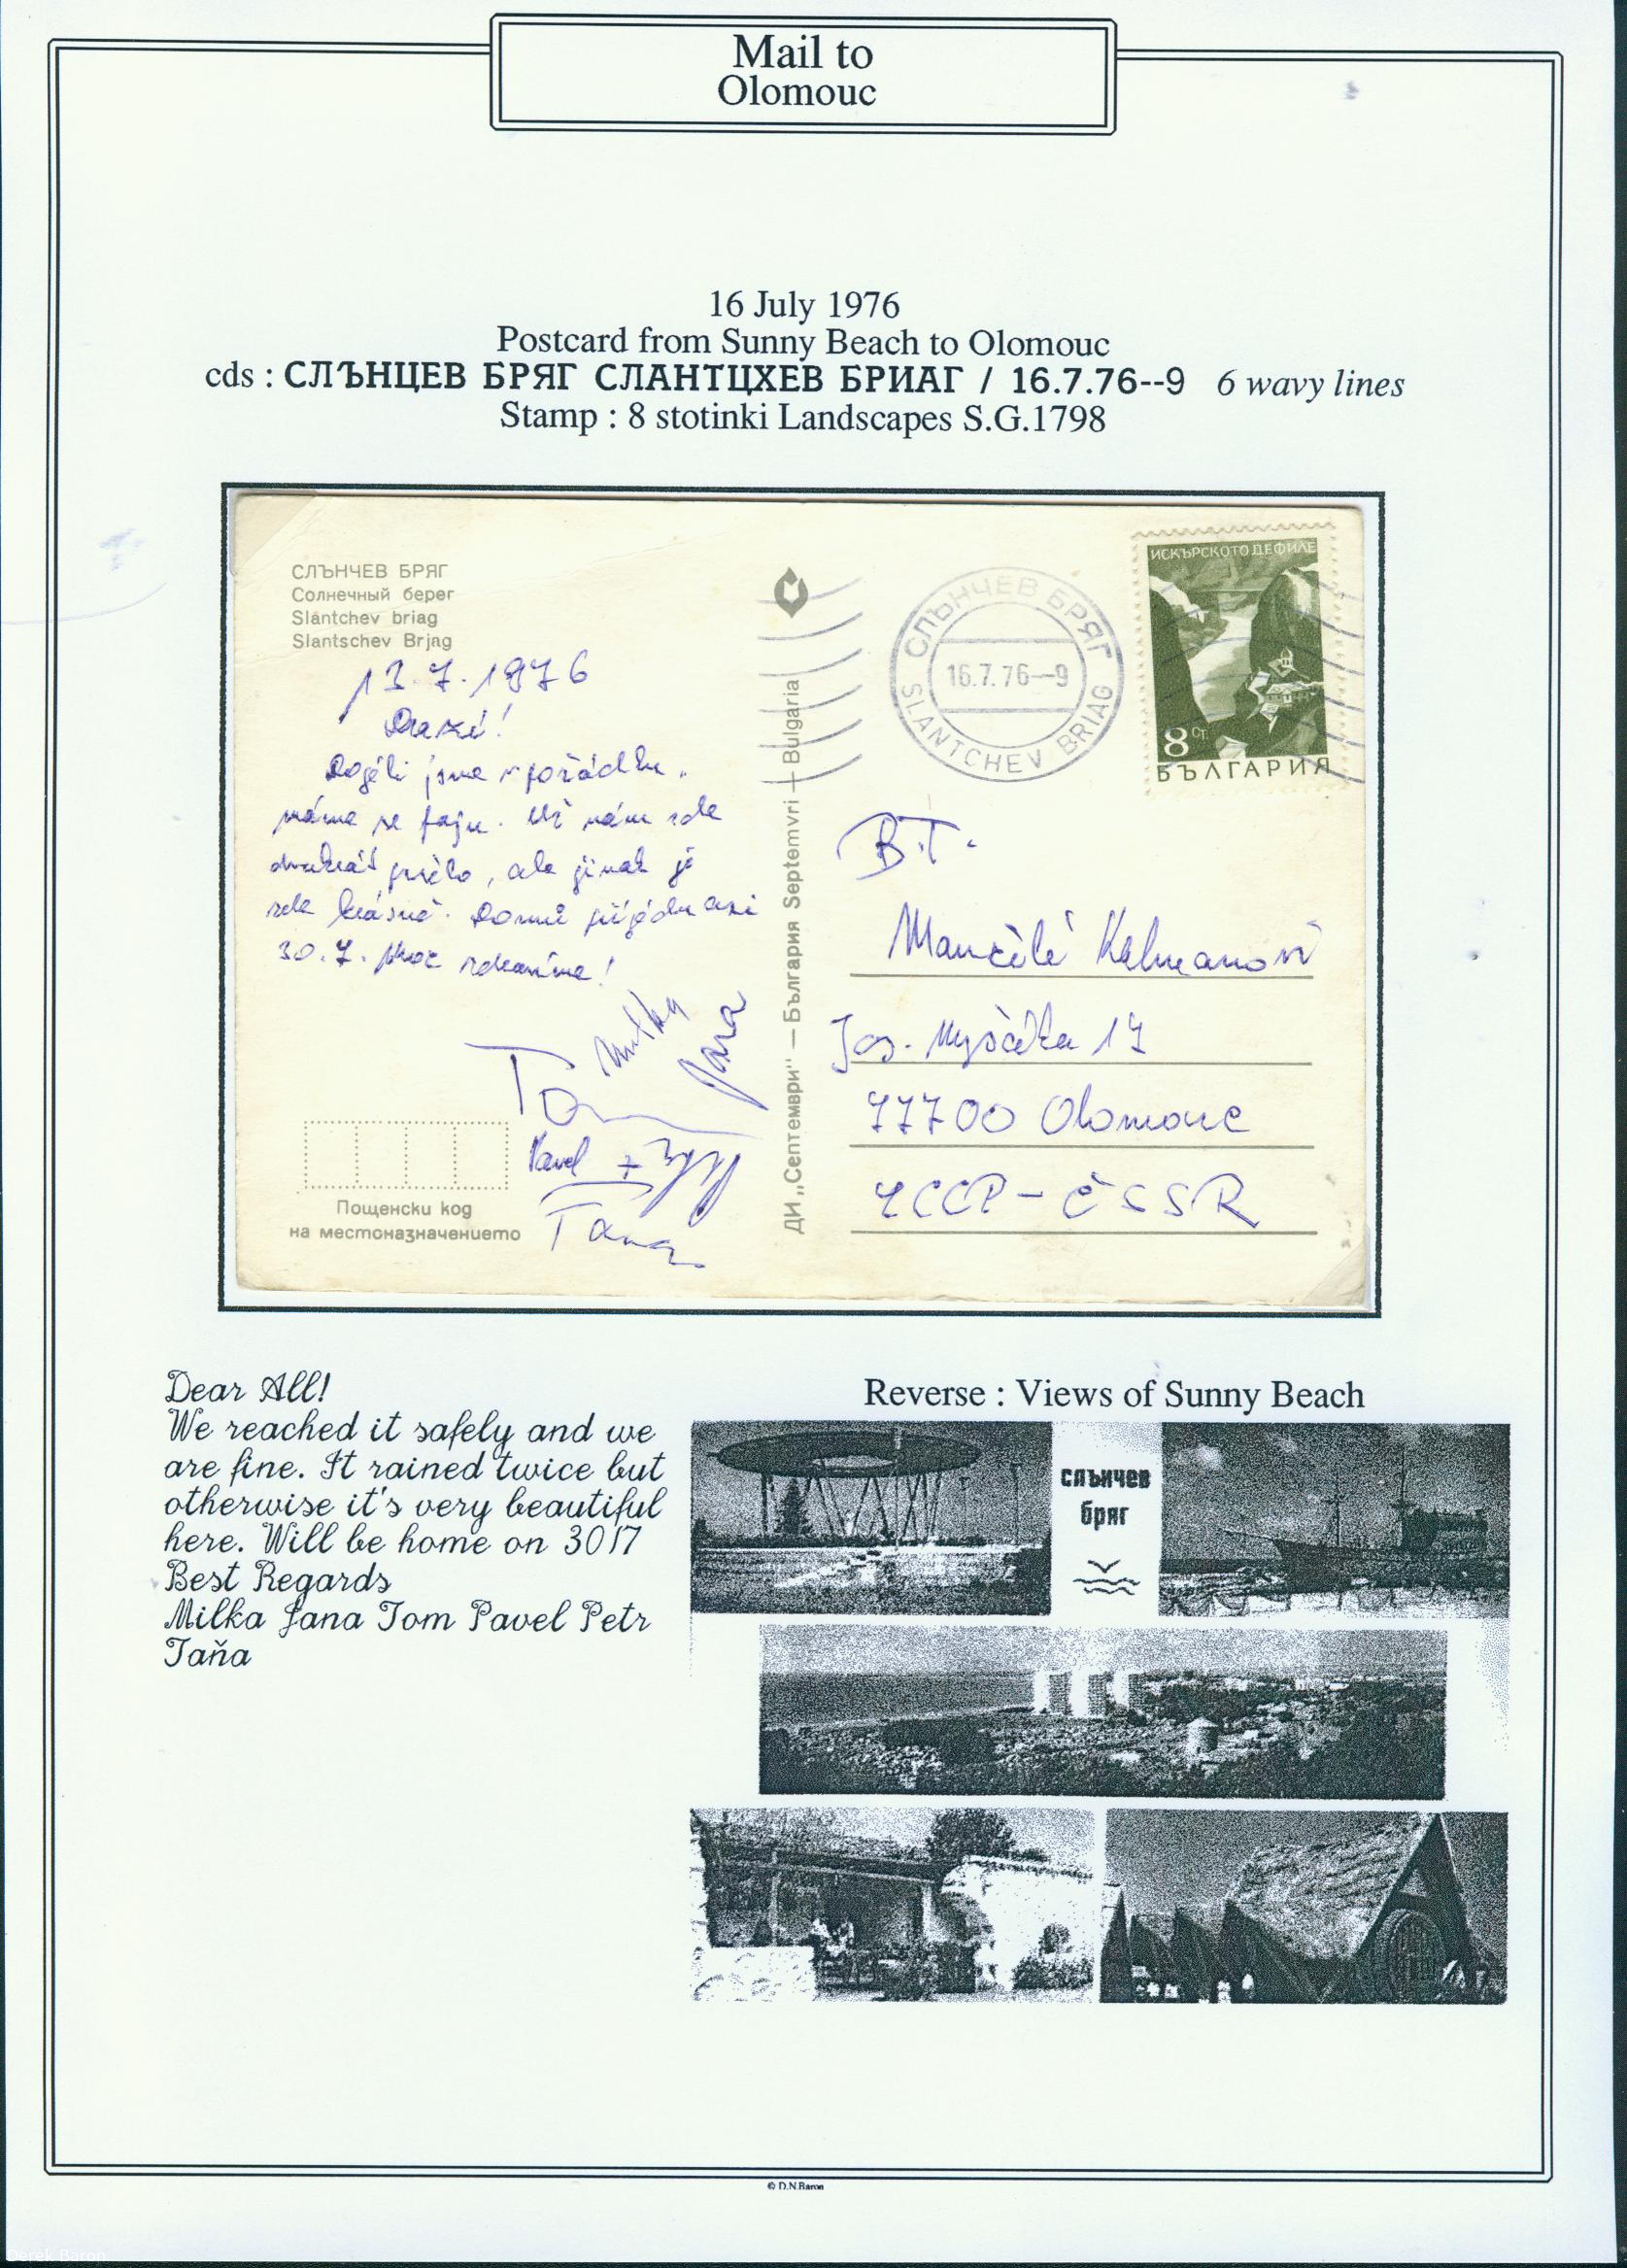 Mail to
Olomouc
16 July 1976
Postcard from Sunny Beach to Olomouc
cds : СЛЪНЦЕВ БРЯГ СЛАНТЦХЕВ БРИАГ / 16.7.76--9 6 wavy lines
Stamp : 8 stotinki Landscapes S.G.1798
СЛЪНЧЕВ БРЯГ
Солнечный берег
Slantchev briag
Slantschev Brjag
13.7.1976
Drazí!
Dojeli jsme v pořádku,
máme se fajn. Už nám zde
dvakrát pršelo, ale jinak je
zde krásně. Domů přijedu asi
30.7. Moc zdravíme!
Milka
Jana
Tom
Pavel +
Taňa
Пощенски код
на местоназначението
ДИ „Септември" — България Septemvri — Bulgaria
СЛЪНЧЕВ БРЯГ
16.7.76--9
SLANTCHEV BRIAG
ИСКЪРСКОТО ДЕФИЛЕ
8 СТ.
БЪЛГАРИЯ
B.T.
Manželé Kalmanovi
Jos. 17
77700 Olomouc
ЧССР - ČSSR
Dear All!
We reached it safely and we
are fine. It rained twice but
otherwise it's very beautiful
here. Will be home on 30/7
Best Regards
Milka Jana Tom Pavel Petr
Taňa
Reverse : Views of Sunny Beach
слънчев
бряг
© D.N.Baron
Derek Baron